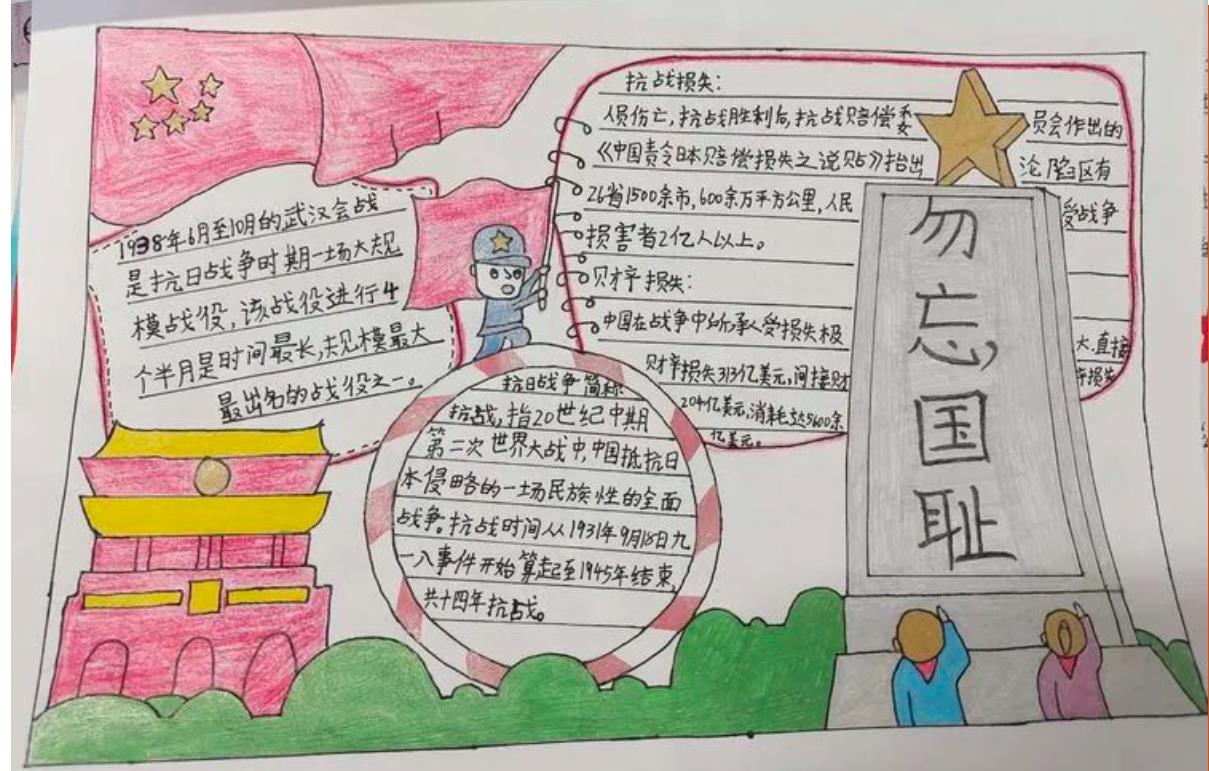 1938年6月至10月的武汉会战
是抗日战争时期一场大规
模战役,该战役进行4
个半月是时间最长,规模最大
最出名的战役之一。
抗日战争简称
抗战,指20世纪中期
第二次世界大战中,中国抵抗日
本侵略的一场民族性的全面
战争。抗战时间从1931年9月18日九
一八事件开始算起至1945年结束,
共十四年抗战。
抗战损失:
人员伤亡,抗战胜利后,抗战赔偿委员会作出的
《中国责令日本赔偿损失之说贴》指出 沦陷区有
26省1500余市,600余万平方公里,人民受战争
损害者2亿人以上。
财产损失:
中国在战争中所承受损失极大.直接
财产损失313亿美元,间接财产损失
204亿美元,消耗达5600余
亿美元。
勿忘国耻